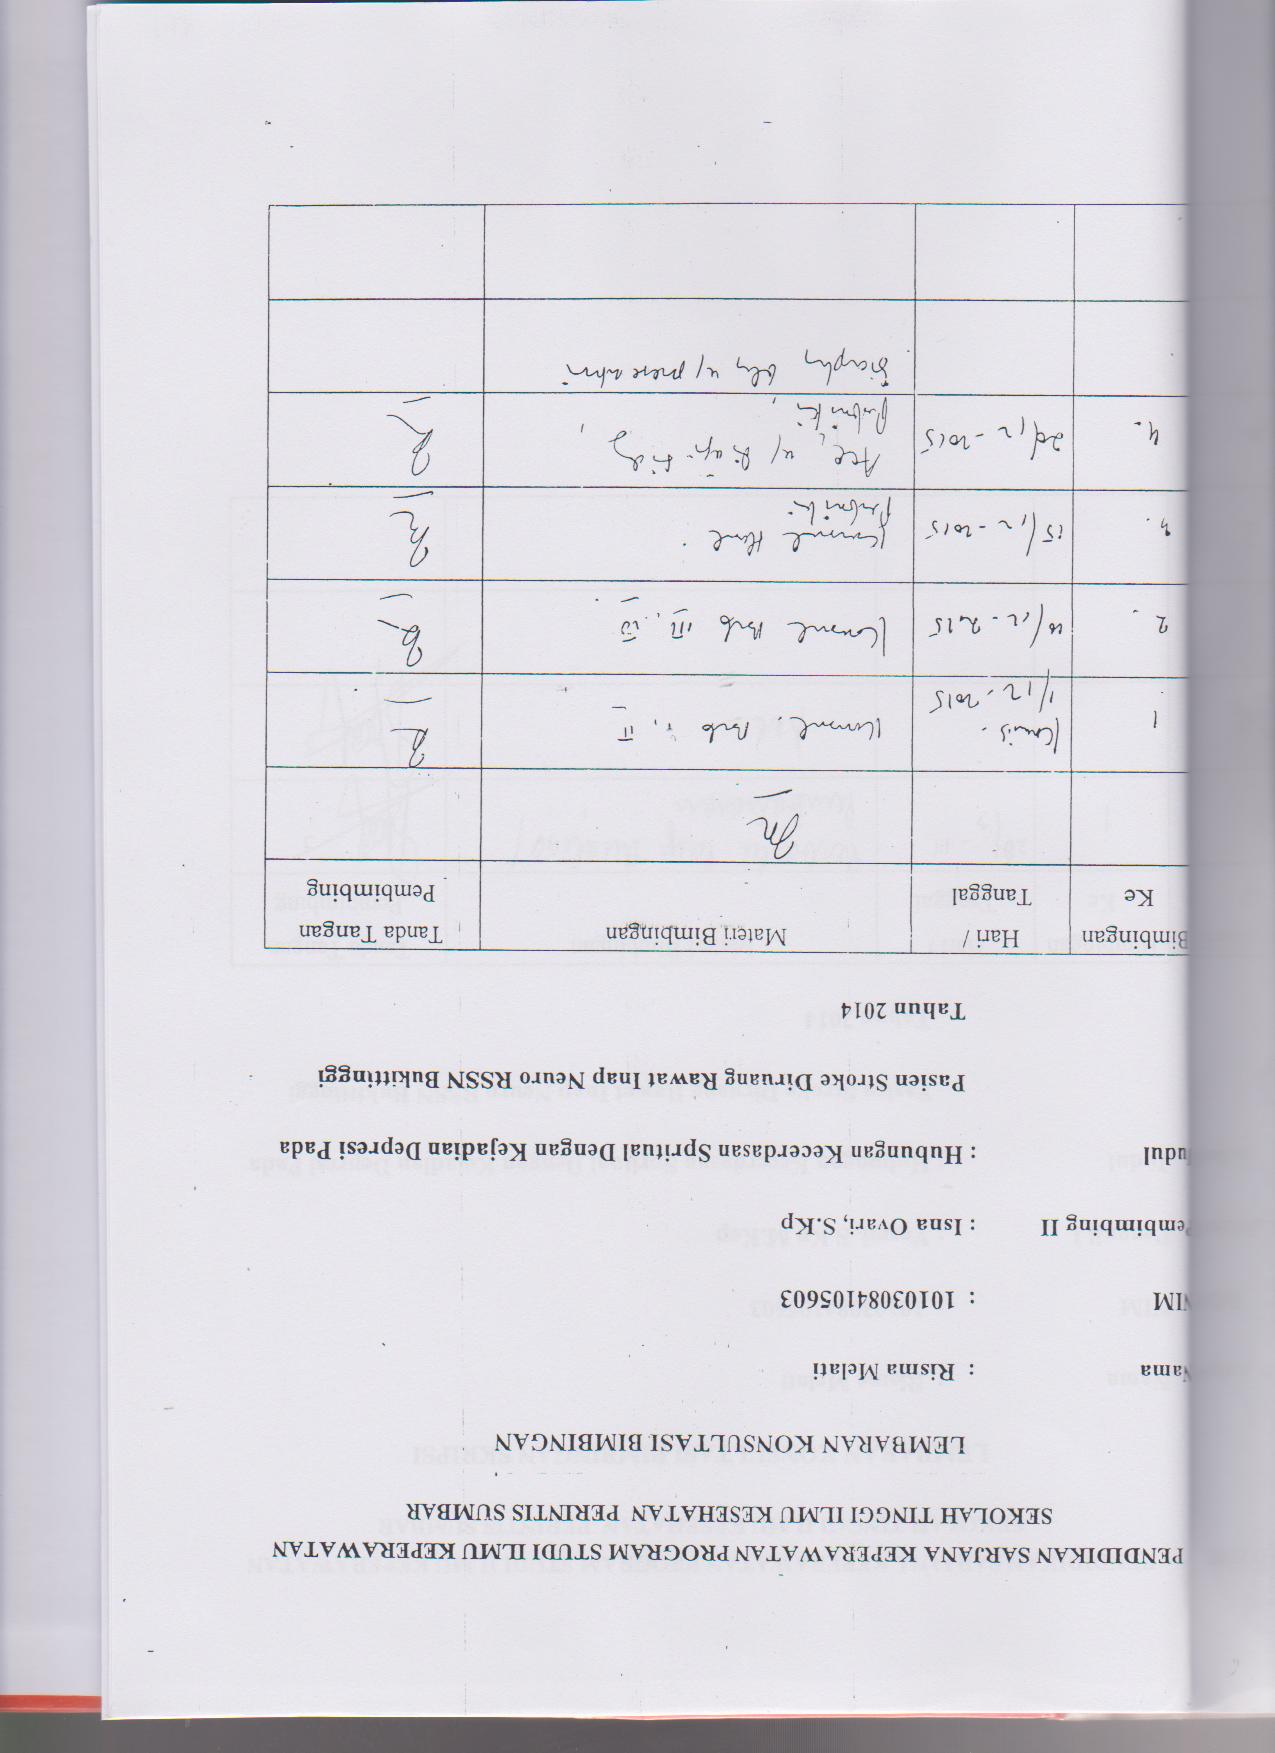 PENDIDIKAN SARJANA KEPERAWATAN PROGRAM STUDI ILMU KEPERAWATAN
SEKOLAH TINGGI ILMU KESEHATAN PERINTIS SUMBAR
LEMBARAN KONSULTASI BIMBINGAN
Nama : Risma Melati
NIM : 10103084105603
Pembimbing II : Isna Ovari, S.Kp
Judul : Hubungan Kecerdasan Spritual Dengan Kejadian Depresi Pada
Pasien Stroke Diruang Rawat Inap Neuro RSSN Bukittinggi
Tahun 2014
Bimbingan Ke
Hari / Tanggal
Materi Bimbingan
Tanda Tangan Pembimbing
1 Kamis 1/12-2015 Konsul Bab I, II
2. Konsul Bab III, IV
3. 15/12-2015 Konsul Hasil
4. Acc u/